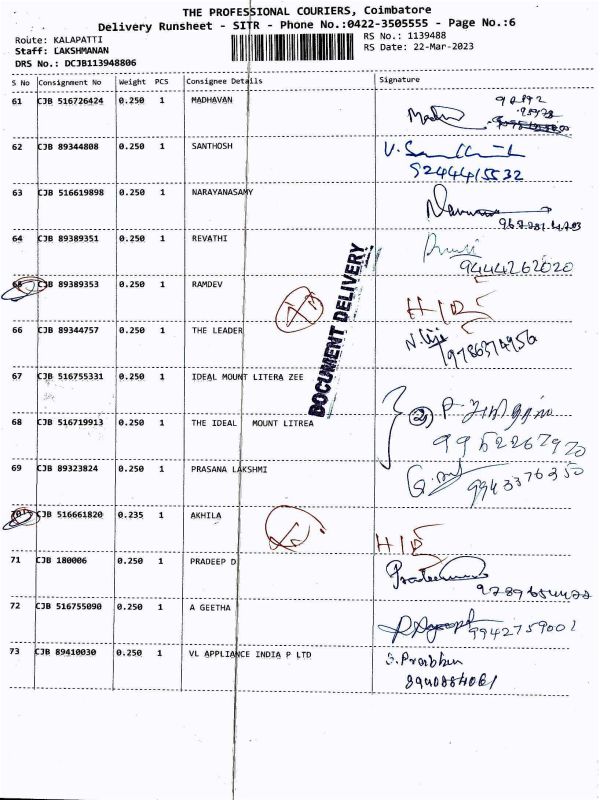 THE PROFESSIONAL COURIERS, Coimbatore
Delivery Runsheet - SITR - Phone No.:0422-3505555 - Page No.:6
Route: KALAPATTI
RS No.: 1139488
Staff: LAKSHMANAN
RS Date: 22-Mar-2023
DRS No.: DCJB113948806
S No Consignment No Weight PCS Consignee Details Signature
61 CJB 516726424 0.250 1 MADHAVAN
62 CJB 89344808 0.250 1 SANTHOSH
9244415532
63 CJB 516619898 0.250 1 NARAYANASAMY
64 CJB 89389351 0.250 1 REVATHI
9444262020
CJB 89389353 0.250 1 RAMDEV
66 CJB 89344757 0.250 1 THE LEADER
DOCUMENT DELIVERY
67 CJB 516755331 0.250 1 IDEAL MOUNT LITERA ZEE
68 CJB 516719913 0.250 1 THE IDEAL MOUNT LITREA
9952267920
69 CJB 89323824 0.250 1 PRASANA LAKSHMI
9943376350
CJB 516661820 0.235 1 AKHILA
71 CJB 180006 0.250 1 PRADEEP D
72 CJB 516755090 0.250 1 A GEETHA
73 CJB 89410030 0.250 1 VL APPLIANCE INDIA P LTD
S. Prabhu
8940884061